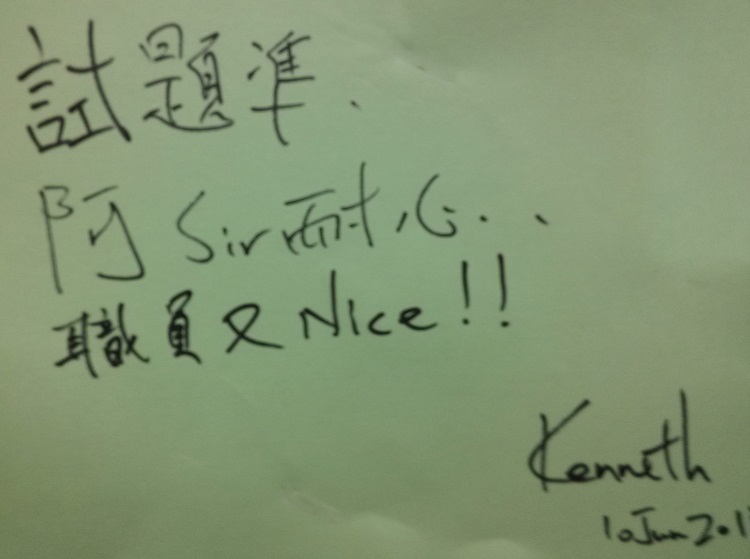 試題準.
阿Sir耐心..
職員又Nice!!
Kenneth